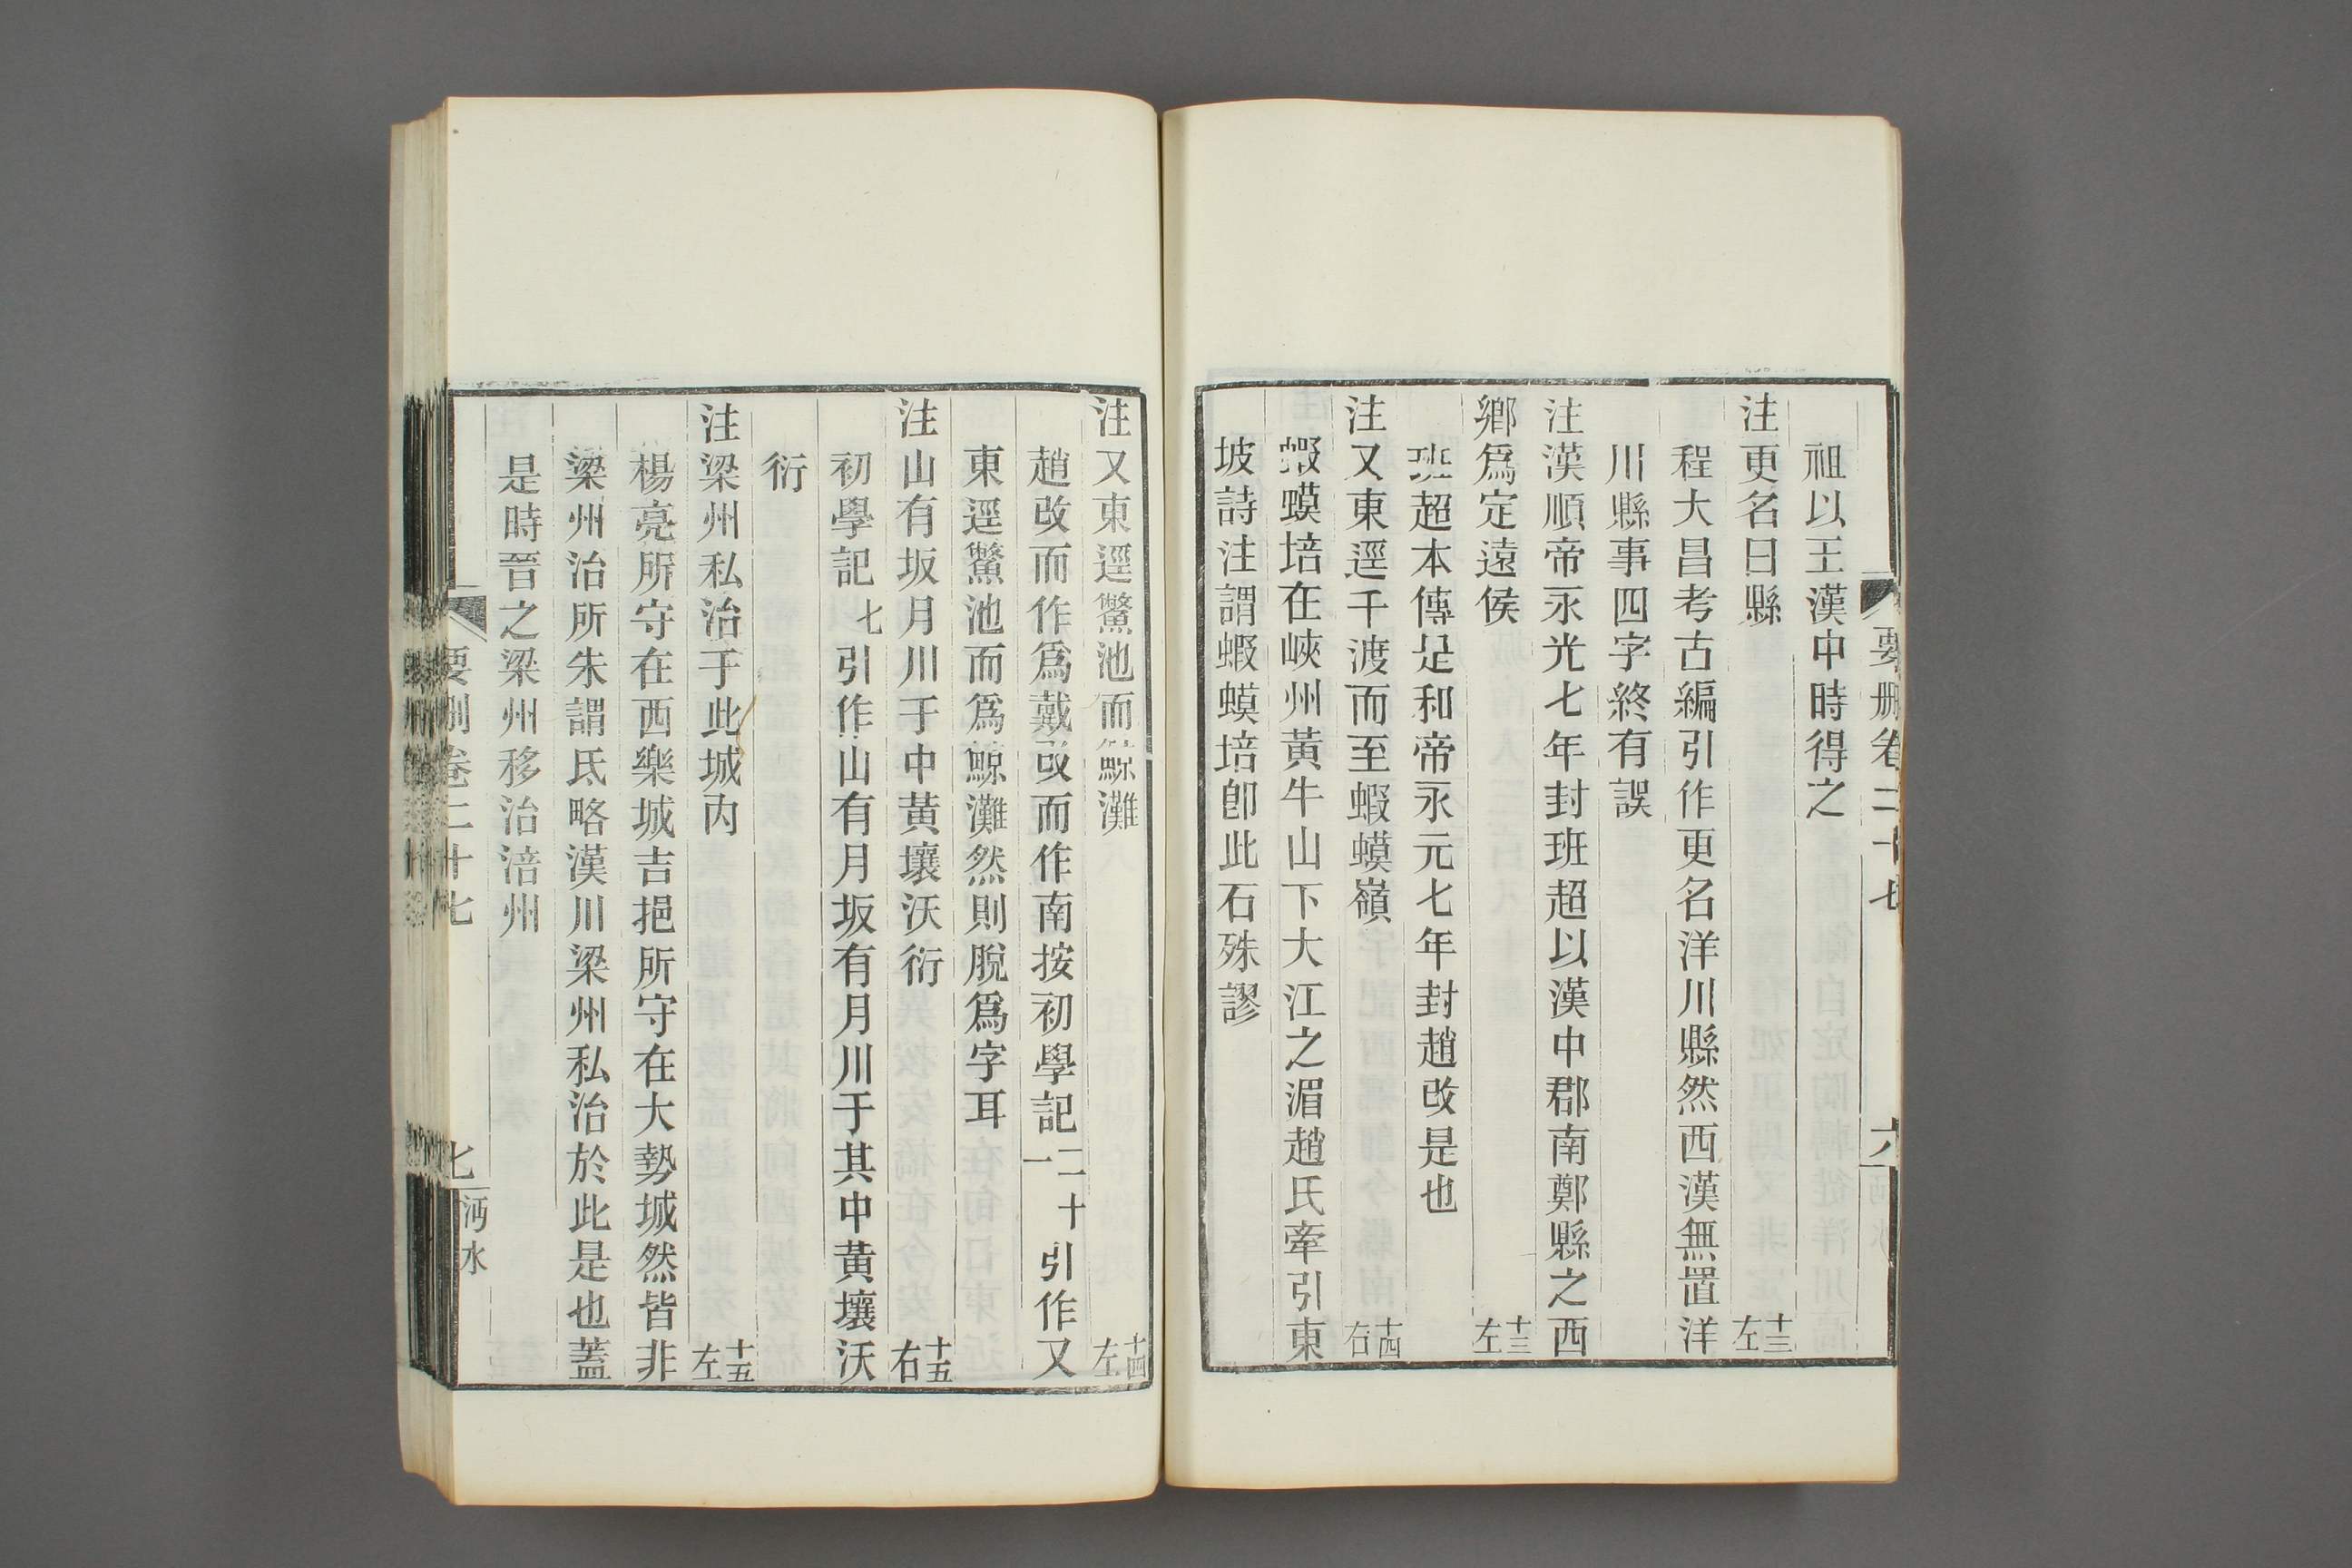 要刪卷二十七　六
祖以王漢中時得之
注更名曰縣　十三左
程大昌考古編引作更名洋川縣然西漢無置洋
川縣事四字終有誤
注漢順帝永光七年封班超以漢中郡南鄭縣之西
鄉爲定遠侯　十三左
班超本傳是和帝永元七年封趙改是也
注又東逕千渡而至蝦蟆嶺　十四右
蝦蟆培在峽州黃牛山下大江之湄趙氏牽引東
坡詩注謂蝦蟆培卽此石殊謬
注又東逕鱉池而鯨灘　十四左
趙改而作爲戴改而作南按初學記二十一引作又
東逕鱉池而爲鯨灘然則脫爲字耳
注山有坂月川于中黃壤沃衍　十五右
初學記七引作山有月坂有月川于其中黃壤沃
衍
注梁州私治于此城內　十五左
楊亮所守在西樂城吉挹所守在大勢城然皆非
梁州治所朱謂氐略漢川梁州私治於此是也蓋
是時晉之梁州移治涪州
要刪卷二十七　七　沔水